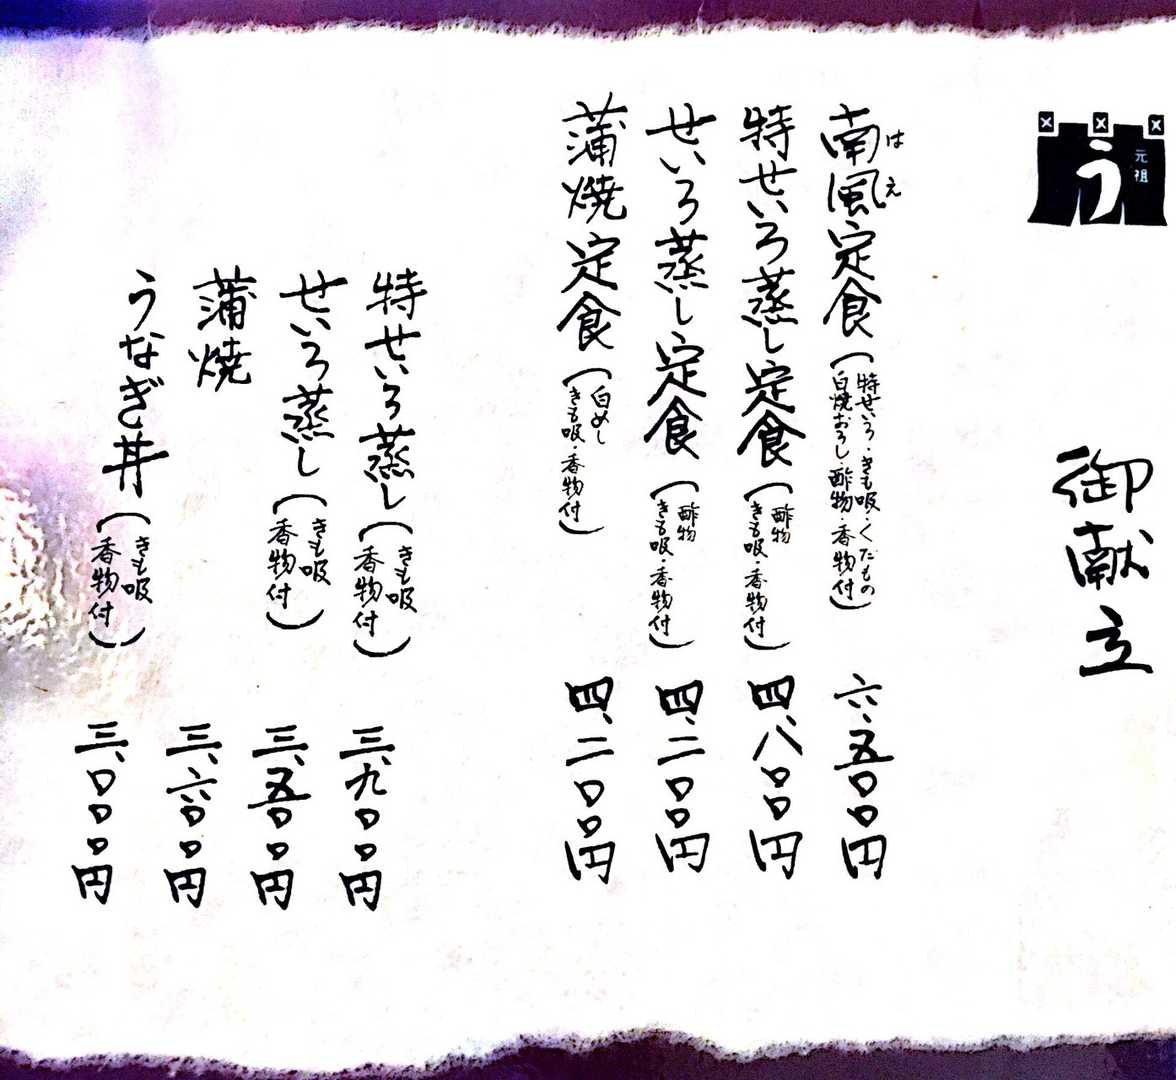 元祖
う
御献立
南風定食
はえ
(特せいろ・きも吸・くだもの
白焼おろし酢物・香物付)
六、五〇〇円
特せいろ蒸し定食
(酢物
きも吸・香物付)
四、八〇〇円
せいろ蒸し定食
(酢物
きも吸・香物付)
四、二〇〇円
蒲焼定食
(白めし
きも吸・香物付)
四、二〇〇円
特せいろ蒸し
(きも吸
香物付)
三、九〇〇円
せいろ蒸し
(きも吸
香物付)
三、五〇〇円
蒲焼
三、六〇〇円
うなぎ丼
(きも吸
香物付)
三、〇〇〇円